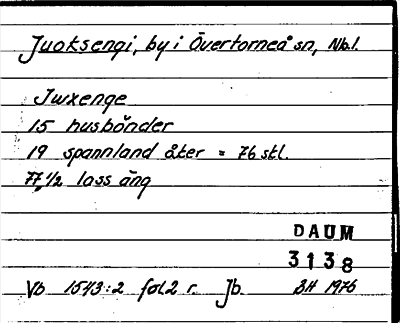 Juoksengi, by i Övertorneå sn, Nb.l.
Juxenge
15 husbönder
19 spannland åker = 76 stl.
77,1/2 lass äng
DAUM
3138
Vb 1543:2 fol 2 r. Jb. BH 1976